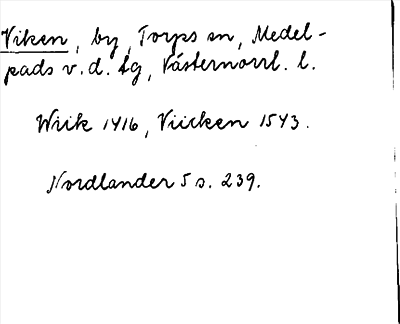 Viken, by, Torps sn, Medel-
pads v. d. tg, Västernorrl. l.
Wiik 1416, Viicken 1543.
Nordlander 5 s. 239.